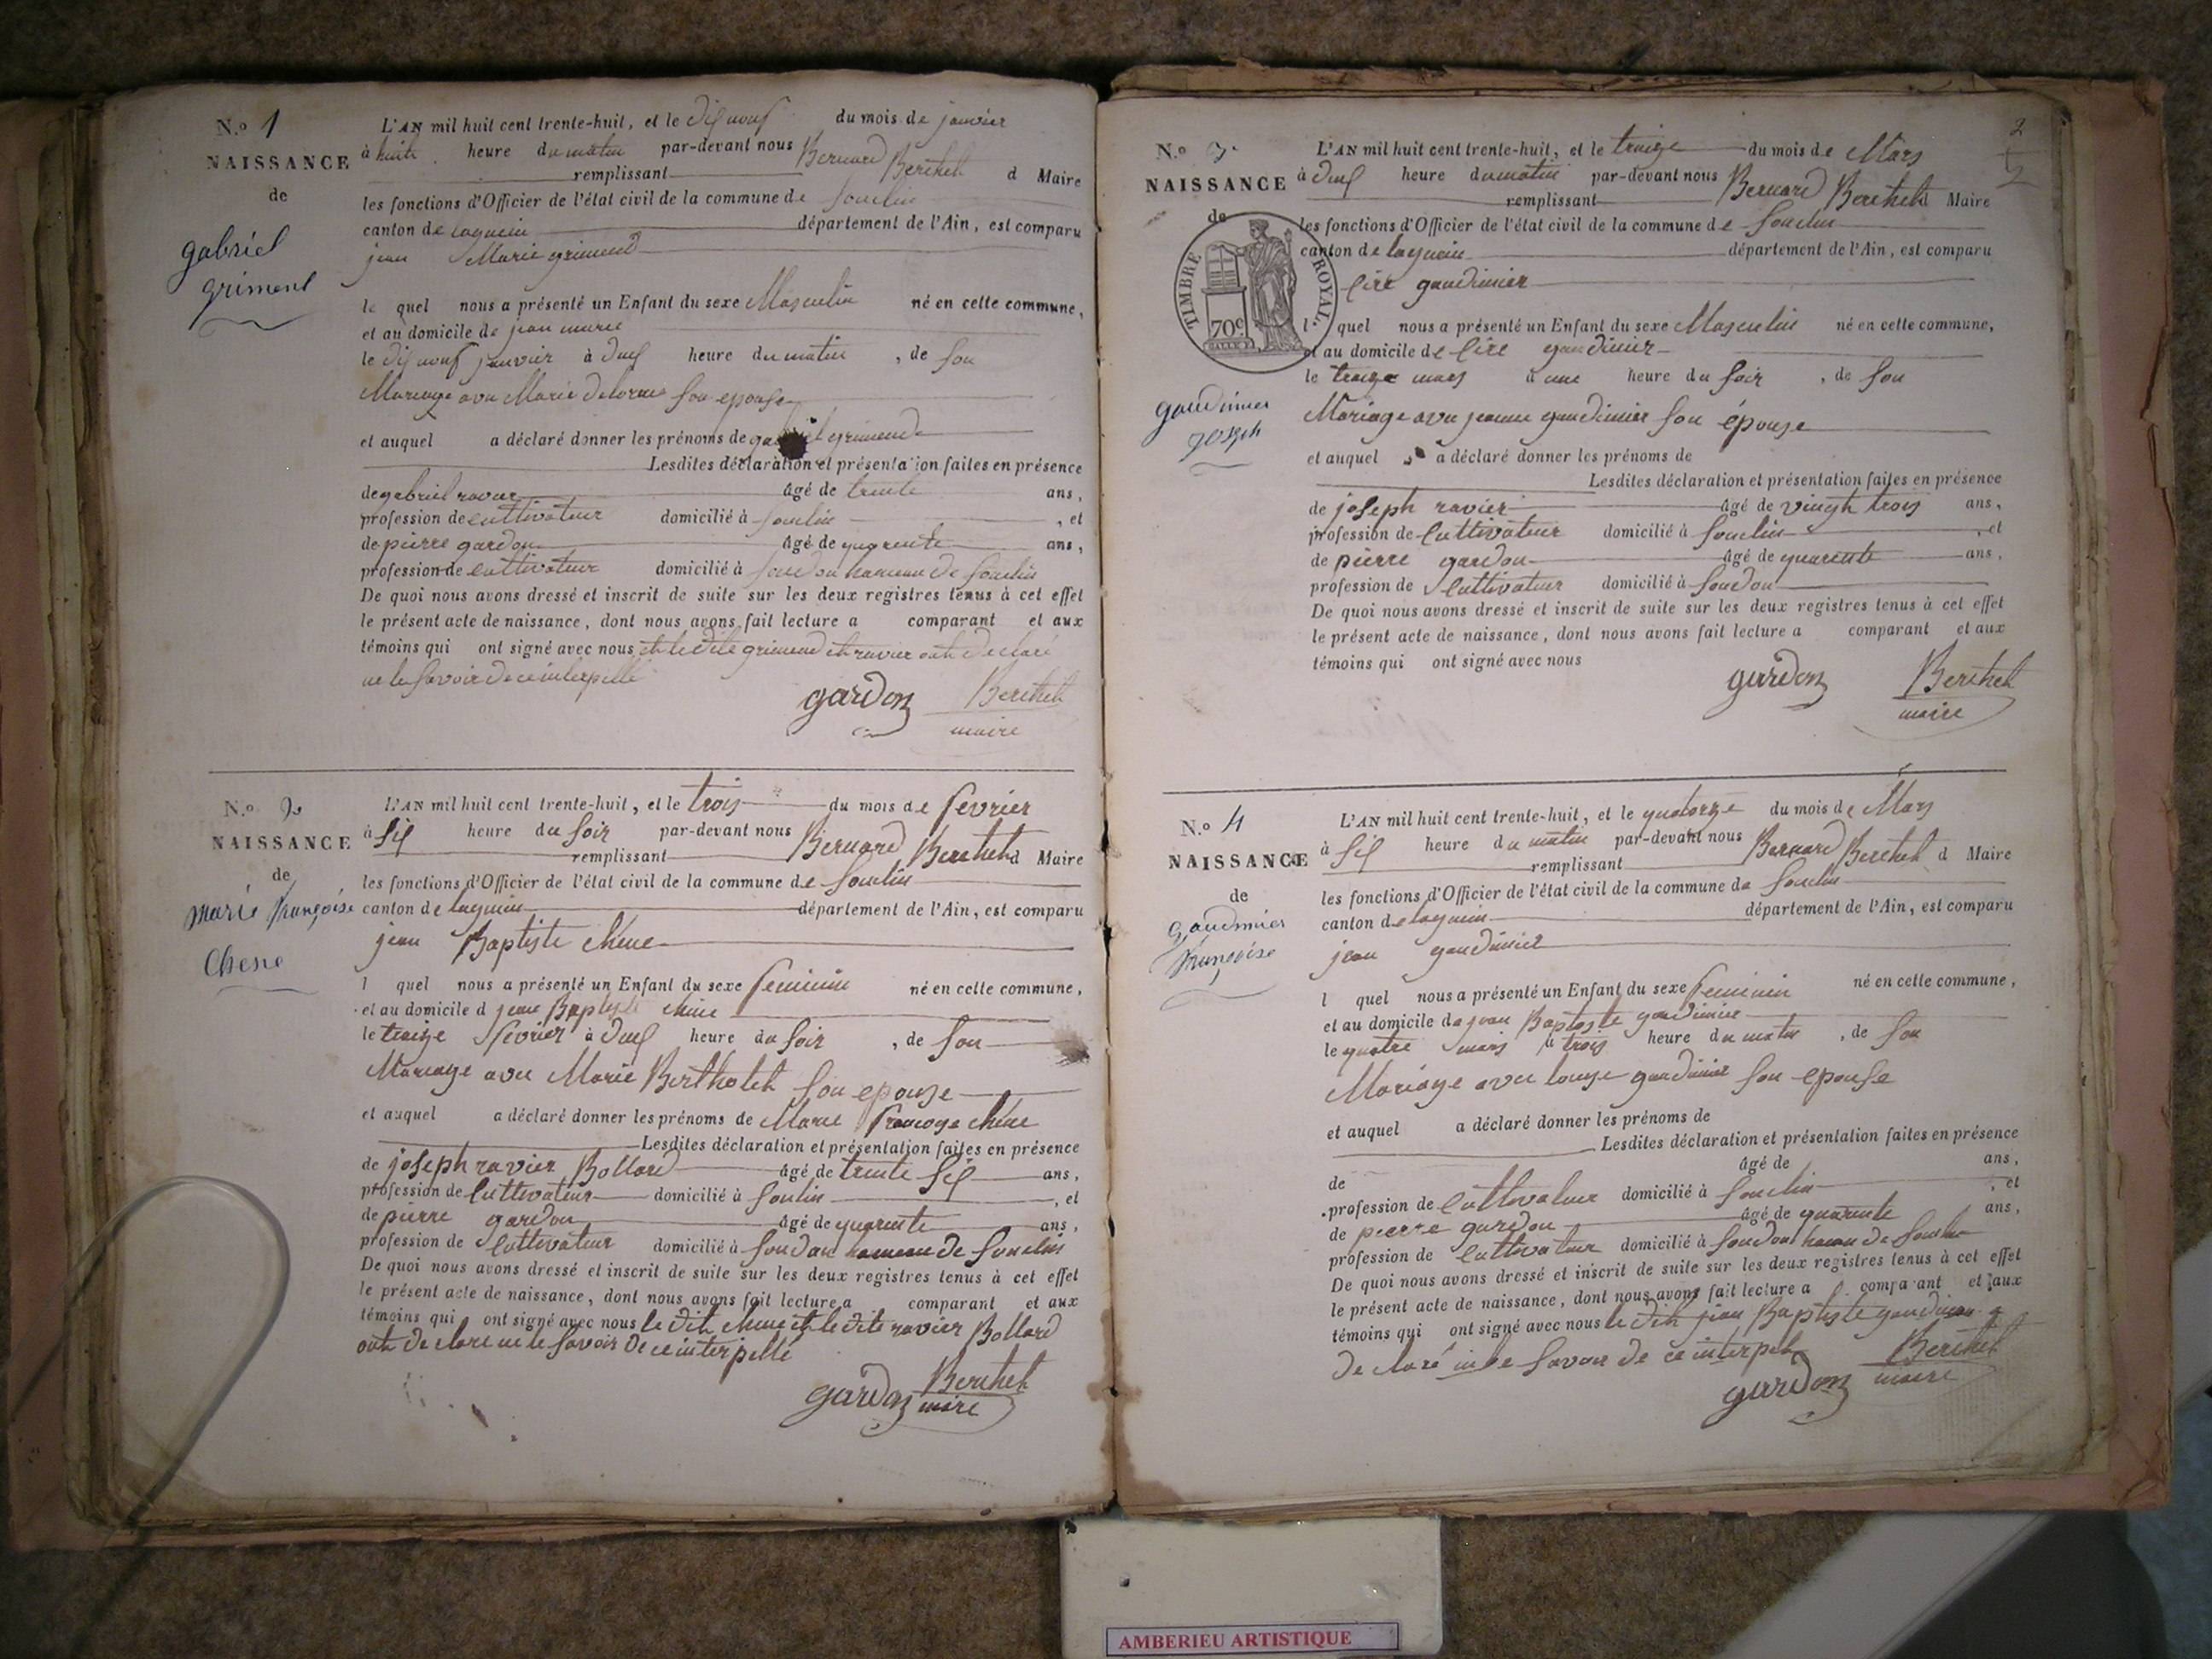 N.º 1
NAISSANCE
de
gabriel
griment
L'AN mil huit cent trente-huit, et le dix nouf du mois de janvier
à huit heure du matin par-devant nous Bernard Berthet d Maire
remplissant
les fonctions d'Officier de l'état civil de la commune de Souclin
canton de lagnieu département de l'Ain, est comparu
jean Marie grimend
le quel nous a présenté un Enfant du sexe Masculin né en cette commune,
et au domicile de jean marie
le dix nouf janvier à deux heure du matin, de son
Mariage avec Marie delorme son epouse
et auquel a déclaré donner les prénoms de gabriel grimend
Lesdites déclaration et présentation faites en présence
de gabriel ravier âgé de trente ans,
profession de cultivateur domicilié à Souclin, et
de pierre gardon âgé de quarente ans,
profession de cultivateur domicilié à Soudon hameau de Souclin
De quoi nous avons dressé et inscrit de suite sur les deux registres tenus à cet effet
le présent acte de naissance, dont nous avons fait lecture a comparant et aux
témoins qui ont signé avec nous et le dite grimend et ravier ont declaré
ne le savoir de ce interpellé
gardon Berthet
maire
N.º 2
NAISSANCE
de
marie françoise
Chesne
L'AN mil huit cent trente-huit, et le trois du mois de fevrier
à six heure du soir par-devant nous Bernard Berthet d Maire
remplissant
les fonctions d'Officier de l'état civil de la commune de Souclin
canton de lagnieu département de l'Ain, est comparu
jean Baptiste chene
l quel nous a présenté un Enfant du sexe feminin né en cette commune,
et au domicile d jean Baptiste chene
le treize fevrier à deux heure du soir, de son
Mariage avec Marie Bertholet son epouse
et auquel a déclaré donner les prénoms de Marie françoise chene
Lesdites déclaration et présentation faites en présence
de joseph ravier Bollard âgé de trente six ans,
profession de cultivateur domicilié à Souclin, et
de pierre gardon âgé de quarente ans,
profession de cultivateur domicilié à Soudon hameau de Souclin
De quoi nous avons dressé et inscrit de suite sur les deux registres tenus à cet effet
le présent acte de naissance, dont nous avons fait lecture a comparant et aux
témoins qui ont signé avec nous le dit chene et le dite ravier Bollard
ont de clare ne le savoir de ce interpellé
gardon Berthet
maire
2
N.º 3
NAISSANCE
de
TIMBRE ROYAL
70c
gaudinier
joseph
L'AN mil huit cent trente-huit, et le treize du mois de Mars
à deux heure du matin par-devant nous Bernard Berthet d Maire
remplissant
les fonctions d'Officier de l'état civil de la commune de Souclin
canton de lagnieu département de l'Ain, est comparu
gaudinier
l quel nous a présenté un Enfant du sexe Masculin né en cette commune,
et au domicile de gaudinier
le treize mars à une heure du soir, de son
Mariage avec jeanne gaudinier son épouse
et auquel a déclaré donner les prénoms de
Lesdites déclaration et présentation faites en présence
de joseph ravier âgé de vingt trois ans,
profession de cultivateur domicilié à Souclin, et
de pierre gardon âgé de quarente ans,
profession de cultivateur domicilié à Soudon
De quoi nous avons dressé et inscrit de suite sur les deux registres tenus à cet effet
le présent acte de naissance, dont nous avons fait lecture a comparant et aux
témoins qui ont signé avec nous
gardon Berthet
maire
N.º 4
NAISSANCE
de
gaudinier
françoise
L'AN mil huit cent trente-huit, et le quatorze du mois de Mars
à six heure du matin par-devant nous Bernard Berthet d Maire
remplissant
les fonctions d'Officier de l'état civil de la commune de Souclin
canton de lagnieu département de l'Ain, est comparu
jean gaudinier
l quel nous a présenté un Enfant du sexe feminin né en cette commune,
et au domicile de jean Baptiste gaudinier
le quatre mars à trois heure du matin, de son
Mariage avec gaudinier son epouse
et auquel a déclaré donner les prénoms de
Lesdites déclaration et présentation faites en présence
de âgé de ans,
profession de cultivateur domicilié à Souclin, et
de pierre gardon âgé de quarente ans,
profession de cultivateur domicilié à Soudon de Souclin
De quoi nous avons dressé et inscrit de suite sur les deux registres tenus à cet effet
le présent acte de naissance, dont nous avons fait lecture a comparant et aux
témoins qui ont signé avec nous le dit jean Baptiste gaudinier
de claré savoir de ce interpelé
gardon Berthet
maire
AMBERIEU ARTISTIQUE